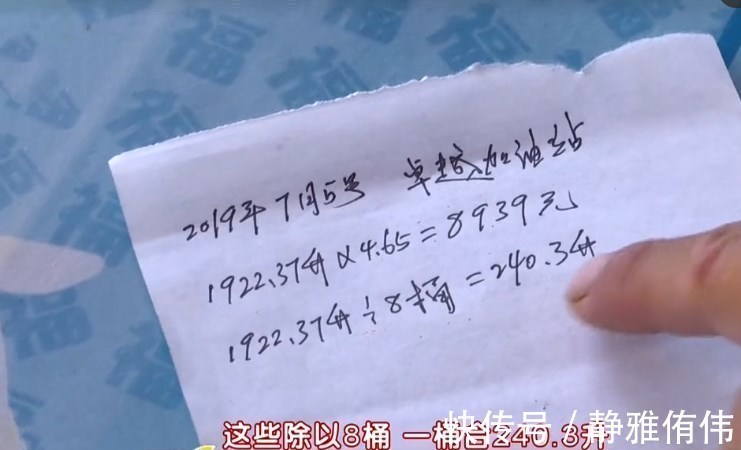 2019年7月5号 卓越加油站
1922.37升×4.65=8939元
1922.37升÷8桶=240.3升
这些除以8桶 一桶合240.3升
快传号/静雅侑伟